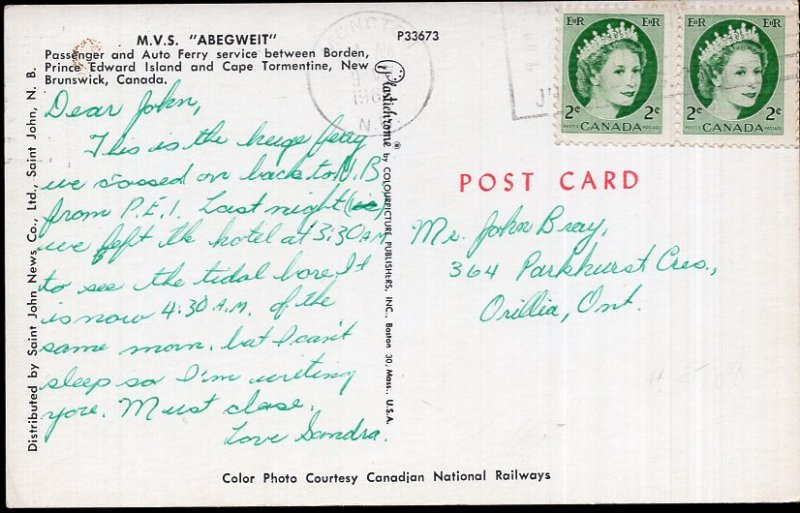 M.V.S. "ABEGWEIT"
P33673
Passenger and Auto Ferry service between Borden,
Prince Edward Island and Cape Tormentine, New
Brunswick, Canada.
Dear John,
This is the huge ferry
we crossed on back to N.B
from P.E.I. Last night
we left the hotel at 3:30 A.M
to see the tidal bore. It
is now 4:30 A.M. of the
same morn. but I can't
sleep so I'm writing
you. Must close.
Love Sandra.
Distributed by Saint John News Co., Ltd., Saint John, N. B.
Plastichrome ® by COLOURPICTURE PUBLISHERS, INC., Boston 30, Mass., U.S.A.
E II R
2¢ 2¢
POSTES CANADA POSTAGE
E II R
2¢ 2¢
POSTES CANADA POSTAGE
POST CARD
Mr. John Bray,
364 Parkhurst Cres.,
Orillia, Ont.
Color Photo Courtesy Canadian National Railways